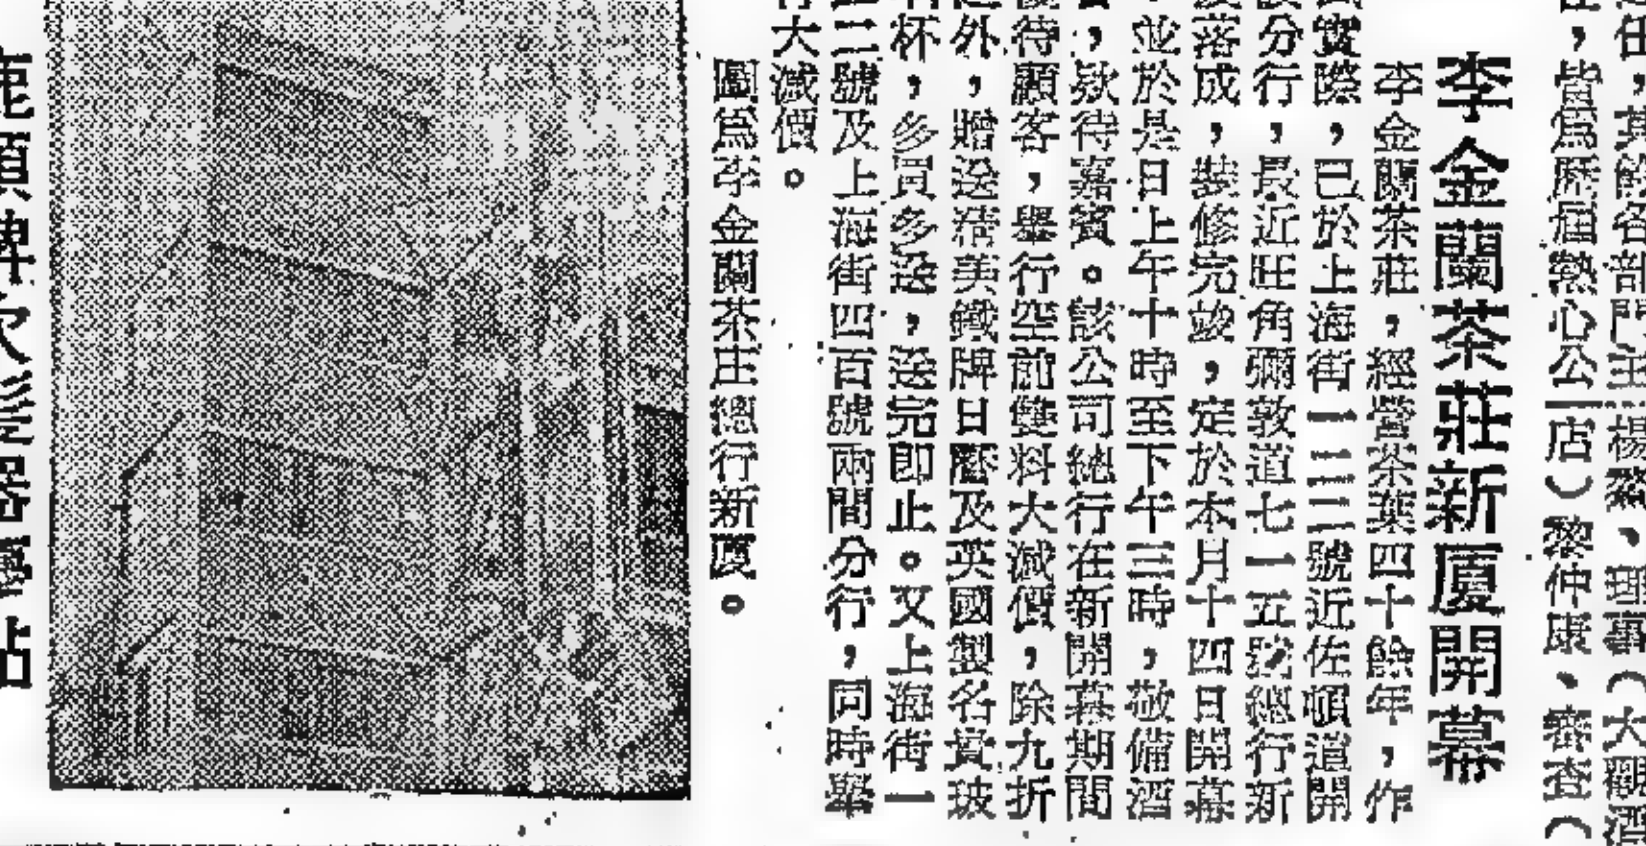 任，其餘各部門主楊燊、理事（大觀酒
，皆為歷屆熱心公店）黎仲康、審查（
李金蘭茶莊新廈開幕
李金蘭茶莊，經營茶葉四十餘年，作
實際，已於上海街一三二號近佐頓道開
分行，最近旺角彌敦道七一五號總行新
落成，裝修完竣，定於本月十四日開幕
，並於是日上午十時至下午三時，敬備酒
，欵待嘉賓。該公司總行在新開幕期間
待顧客，舉行空前雙料大減價，除九折
外，贈送精美鐵牌日曆及英國製名貴玻
杯，多買多送，送完即止。又上海街一
三二號及上海街四百號兩間分行，同時舉
行大減價。
圖為李金蘭茶庄總行新廈。